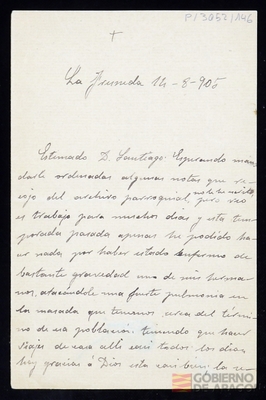 P/3057/146
+
La Fresneda 14-8-905
Estimado D. Santiago: Esperando man-
darle ordenadas algunas notas que re-
cojo del archivo parroquial, pero veo
es trabajo para muchos dias y esta tem-
porada pasada apenas he podido ha-
cer nada, por haber estado enfermo de
bastante gravedad uno de mis herma-
nos, atacándole una fuerte pulmonia en
la masada que tenemos, cerca del térmi-
no de esa poblacion, teniendo que hacer
viajes de casa alli casi todos los dias,
hoy gracias á Dios esta casi bien; la re-
GOBIERNO
DE ARAGON